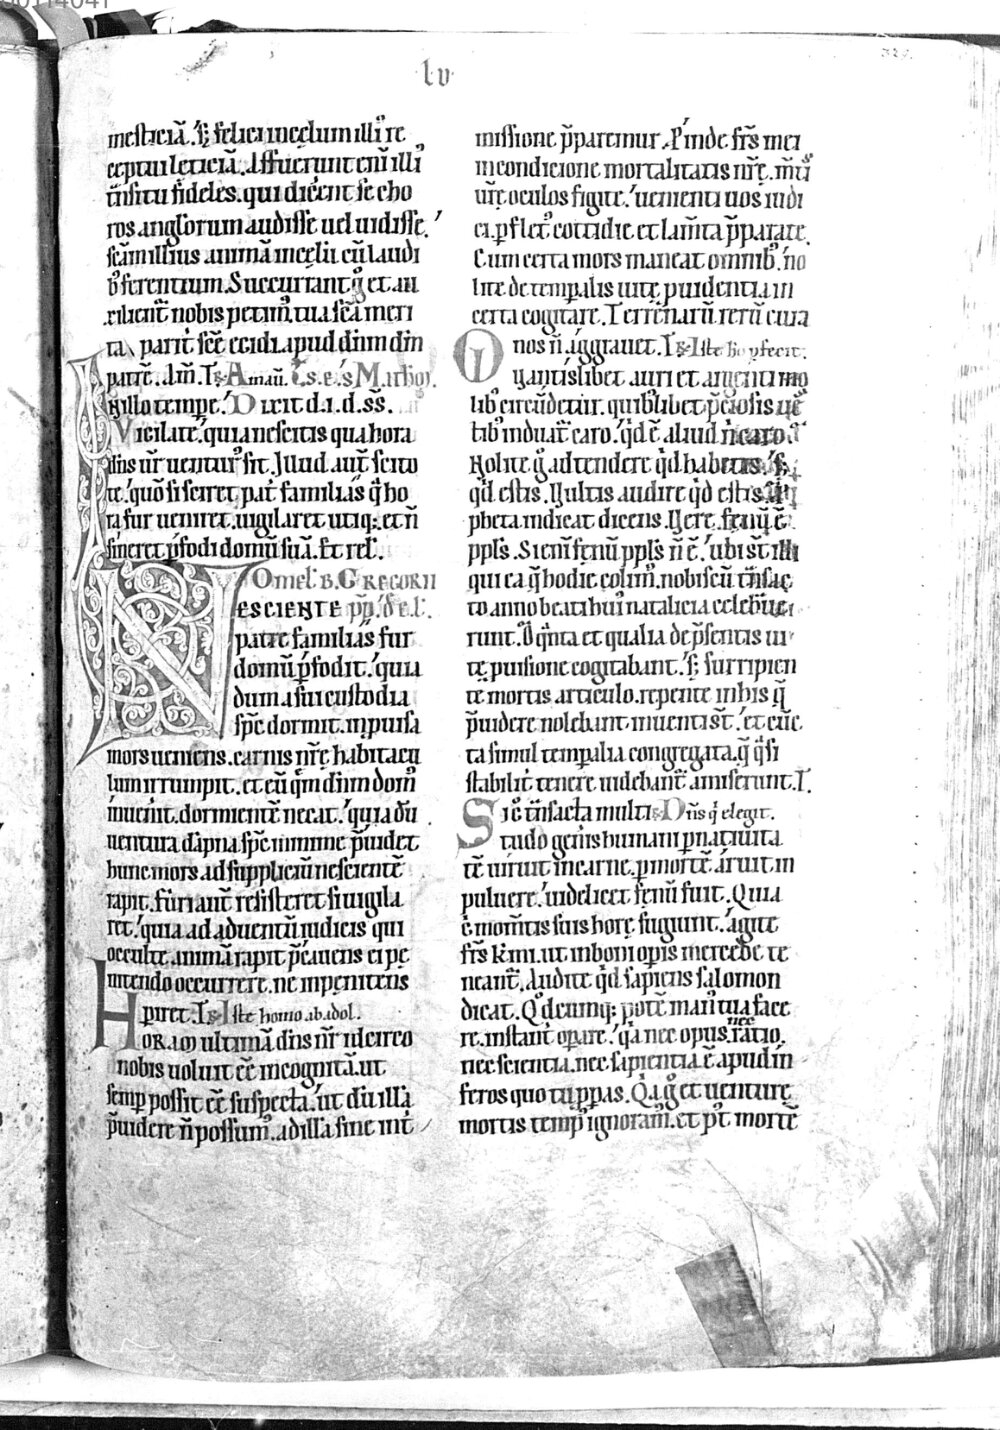 lv
mesticiā. S; felici in cęlum illiꝰ re
ceptaui lęticiā. Affuerunt eni illi
tn̄situi fideles. qui dicerent se cho
ros anglorum audisse uel uidisse.
scām illius animā in cęlis cū laudi
bꝰ ferentium. Succurrant ḡ et au
xilient̄ nobis petimꝰ tua scā meri
ta. pariť scē ecidi apud dn̄m dm̄
patrē. Am̄. T̄s. Amaū. C̄s. e. s. Matheū.
N illo tempr̄e. Dixit d. i. d. ss.
Vigilate. quia nescitis qua hora
dn̄s ur̄ uenturꝰ sit. Illud aut̄ scito
te. quō si sciret pat̄ familias q̄ ho
ra fur ueniret. uigilaret utiq;. et n̄
sineret ꝑfodi domū suā. Et rel̄.
Omel. B. GREGORII
NESCIENTE pp̄. de el.
patre familias fur
domū ꝑfodit. quia
dum a sui custodia
spc̄ dormit. inpuisa
mors ueniens. carnis nr̄ę habitacu
lum irrumpit. et eū q̄m dn̄m domꝰ
inuenit. dormientē necat. quia dū
uentura dāpna spc̄ minime p̄uidet
hunc mors ad suppliciū nescientē
rapit. Furi aut̄ resisteret si uigila
ret. quia aduentū iudicis qui
occulte animā rapit p̄cauens ei pę
nitendo occurreret. ne inpęnitens
piret. T̄s. Iste homo ab adol.
HORAM ultimā dn̄s nr̄ idcirco
nobis uoluit eē incognitā. ut
semp possit eē suspecta. ut dū illā
p̄uidere n̄ possumꝰ. ad illā sine int̄
missione p̄paremur. Pinde frs̄ mei
in condicione mortalitatis nr̄ę. m̄tis
ur̄e oculos figite. uenienti uos iudi
ci. p fletꝰ cottidie et lam̄ta p̄parate.
Cum certa mors maneat omnibꝰ. no
lite de tempalis uitę puidentia in
certa cogitare. Terrenarū rerū cura
uos n̄ aggrauet. T̄s. Iste ho pfecit.
Quantislibet auri et argenti mo
libꝰ circūdetur. quibꝰlibet p̄ciosis ues
tibꝰ induat̄ caro. qd̄ ē aliud n̄ caro
Nolite ḡ adtendere qd̄ habetis. s;
qd̄ estis. Uultis audire qd̄ estis.
pheta indicat dicens. Uere fenū ē
ppls̄. Si eni fenū ppls̄ n̄ ē. ubi st̄ illi
qui ea q̄ hodie colim̄. nobiscū tn̄sac
to anno beati huiꝰ natalicia celebraue
runt. O q̄nta et qualia de p̄sentis ui
tę puisione cogitabant. s; surripien
te mortis articulo. repente in his q̄
p̄uidere nolebant inuenti st̄. et cūc
ta simul tempalia congregata. q̄ q̄si
stabilit̄ tenere uidebant̄ amiserunt. T̄.
Sic tn̄sacta multi. Dn̄s q̄ elegit.
tudo geñis humani p natiuita
tē uiruit in carne. p mortē aruit in
puluere. uidelicet fenū fuit. Quia
ḡ momtis suis horę fugiunt. agite
frs̄ kmi. ut in boni opis mercede te
neant̄. Audite qd̄ sapiens salomon
dicat. Qdcumq; potē manꝰ tua face
re. instant̄ opare. q̄a nec opus. nec ratio.
nec scientia. nec sapientia ē apud in
feros quo tu ppas. Q̄a ḡ et uenturę
mortis tempꝰ ignoramꝰ. et pꝰt mortē